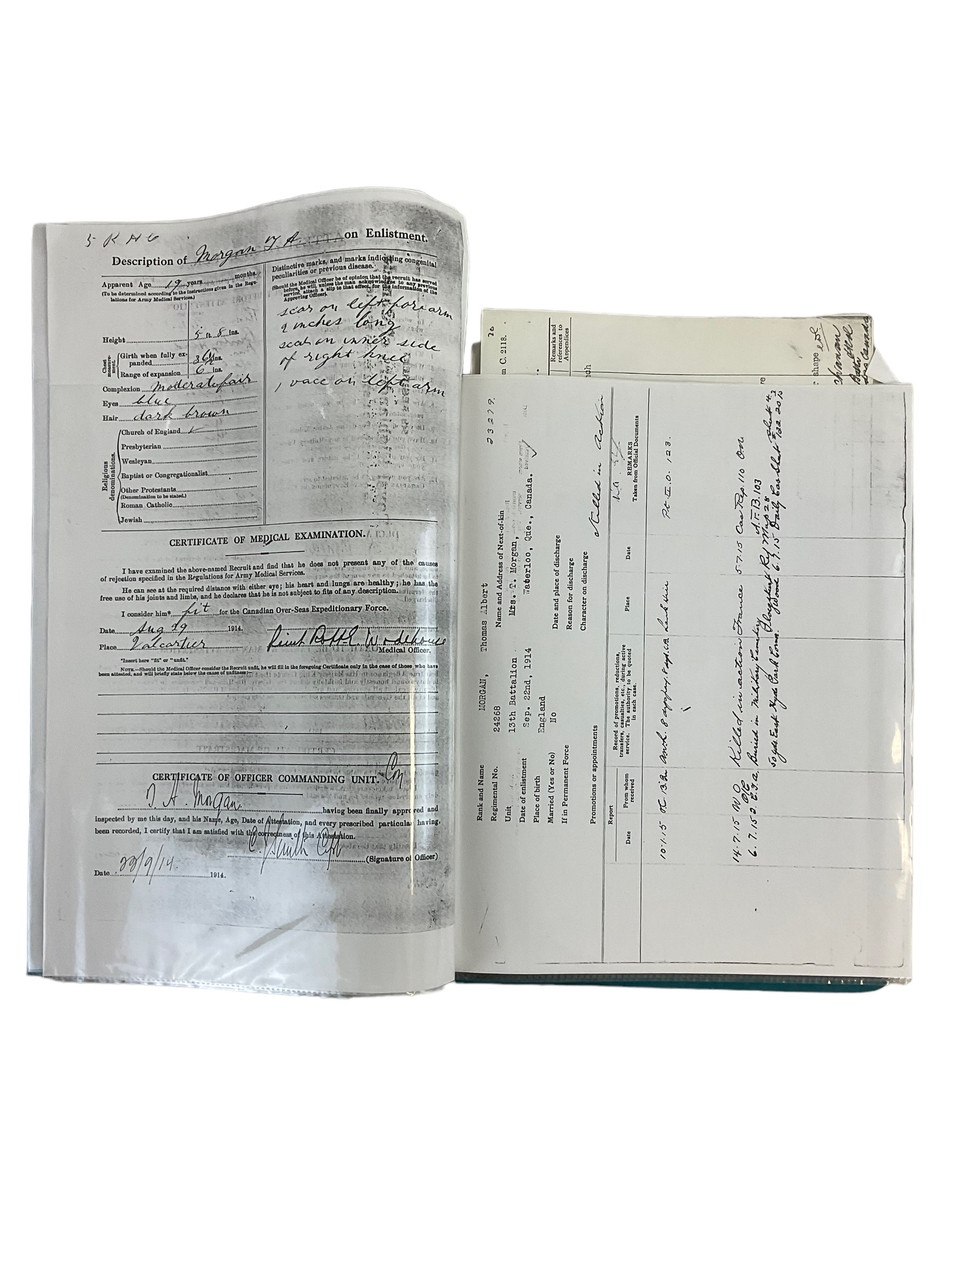 5 R H C
Description of Morgan T A on Enlistment.
Apparent Age 19 years months
(To be determined according to the instructions given in the Regu-
lations for Army Medical Services.)
Height 5 ft. 8 ins.
Chest
measure-
ment.
Girth when fully ex-
panded ins.
Range of expansion 6 ins.
Complexion Moderate fair
Eyes blue
Hair dark brown
Religious
denominations.
Church of England
Presbyterian
Wesleyan
Baptist or Congregationalist
Other Protestants
(Denomination to be stated.)
Roman Catholic
Jewish
Distinctive marks, and marks indicating congenital
peculiarities or previous disease.
(Should the Medical Officer be of opinion that the recruit has served
before, he will, unless the man acknowledges to any previous
service, attach a slip to that effect, for the information of the
Approving Officer).
scar on left forearm
2 inches long
scar on inner side
of right knee
1 vacc on left arm
CERTIFICATE OF MEDICAL EXAMINATION.
I have examined the above-named Recruit and find that he does not present any of the causes
of rejection specified in the Regulations for Army Medical Services.
He can see at the required distance with either eye; his heart and lungs are healthy; he has the
free use of his joints and limbs, and he declares that he is not subject to fits of any description.
I consider him* fit for the Canadian Over-Seas Expeditionary Force.
Date Aug 29 1914.
Place Valcartier
Wodehouse
Medical Officer.
*Insert here "fit" or "unfit."
NOTE.—Should the Medical Officer consider the Recruit unfit, he will fill in the foregoing Certificate only in the case of those who have
been attested, and will briefly state below the cause of unfitness:—
CERTIFICATE OF OFFICER COMMANDING UNIT.
T. A. Morgan having been finally approved and
inspected by me this day, and his Name, Age, Date of Attestation, and every prescribed particular having
been recorded, I certify that I am satisfied with the correctness of this Attestation.
Smith
(Signature of Officer)
Date 22/9/14 1914.
m C. 2118.
76
Remarks and
references to
Appendices
shape
23279.
Rank and Name MORGAN, Thomas Albert
Regimental No. 24268 Name and Address of Next-of-kin
Unit 13th Battalion Mrs. T. Morgan,
Date of enlistment Sep. 22nd, 1914 Waterloo, Que., Canada.
Place of birth England
Married (Yes or No) No Date and place of discharge
If in Permanent Force Reason for discharge
Character on discharge
Promotions or appointments Killed in Action
Report
Date
From whom
received
Record of promotions, reductions,
transfers, casualties, etc., during active
service. The authority to be quoted
in each case.
Place
Date
REMARKS
Taken from Official Documents
10.1.15 Pt II. O. 123.
14.7.15 W O Killed in action France 5.7.15 Cas Rep. 110 On
6.7.15 Buried in Military Cemetery A.F.B. 103